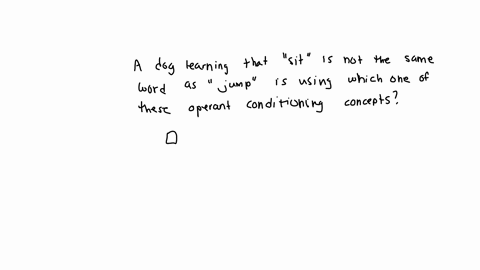 A dog learning that "sit" is not the same
word as "jump" is using which one of
these operant conditioning concepts?